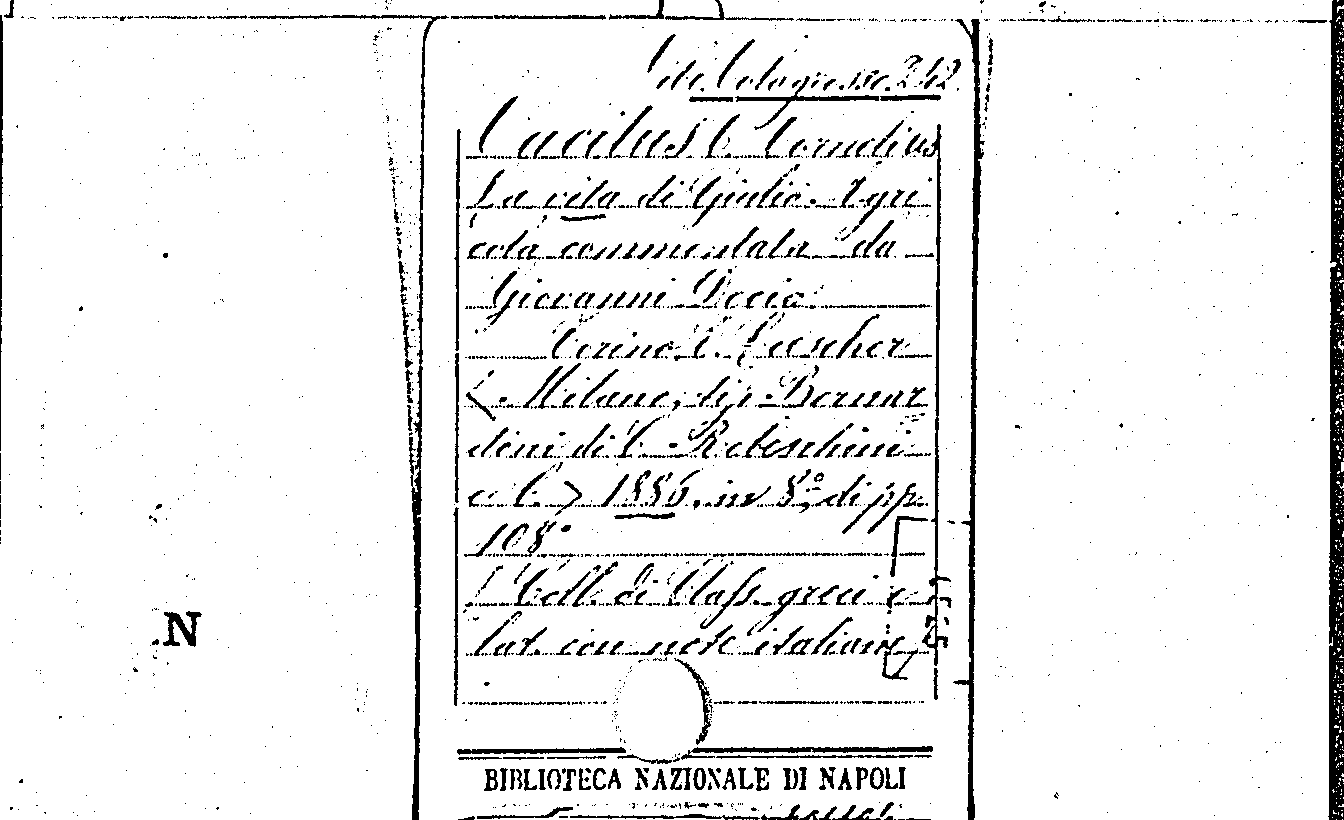 Tacitus C. Cornelius
La vita di Giulio Agri
cola commentata da
Giovanni Decia
Torino E. Loescher
(Milano, tip. Bernar
doni di C. Rebeschini
e C.) 1886. in 8.º di pp.
108.
(Coll. di Class. greci e
lat. con note italiane
N
BIBLIOTECA NAZIONALE DI NAPOLI